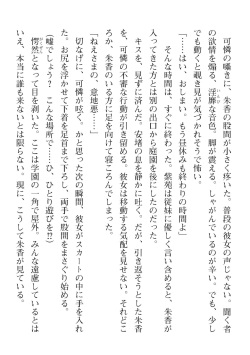 可憐の囁きに、朱香の股間が小さく疼いた。普段の彼女の声じゃない。聞く者
の欲情を煽る、淫靡な音色。脚が震える。しゃがんでいるのが辛い。でも、少し
でも動くと覗き見が気づかれそうで怖い。
「……はい、おしまい。もう昼休みも終わりの時間よ」
そんな時間は、すぐに終わった。紫苑は従妹に優しく言い含めると、朱香が
入ってきた方とは別の出口から庭園を後にしたのだった。
キスを、見ずに済んだ。安堵の息を微かに吐く。だが、引き返そうとした朱香
を、可憐の不審な挙動が引き留める。彼女は移動する気配を見せない。それどこ
ろか、朱香のいる方に足を向けて寝ころんでしまった。
「ねえさまの、意地悪……」
切なげに、可憐が呟く。かと思った次の瞬間、彼女がスカートの中に手を入れ
た。お尻を浮かせて下着を足首まで下ろし、両手で股間をまさぐり始める。
（嘘でしょう？　こんな場所で……ひ、ひとり遊びを!?）
愕然となって目を剥いた。ここは学園の一角で屋外。みんな遠慮しているとは
いえ、本当に誰も来ないとは限らない。現に、こうして朱香が見ている。